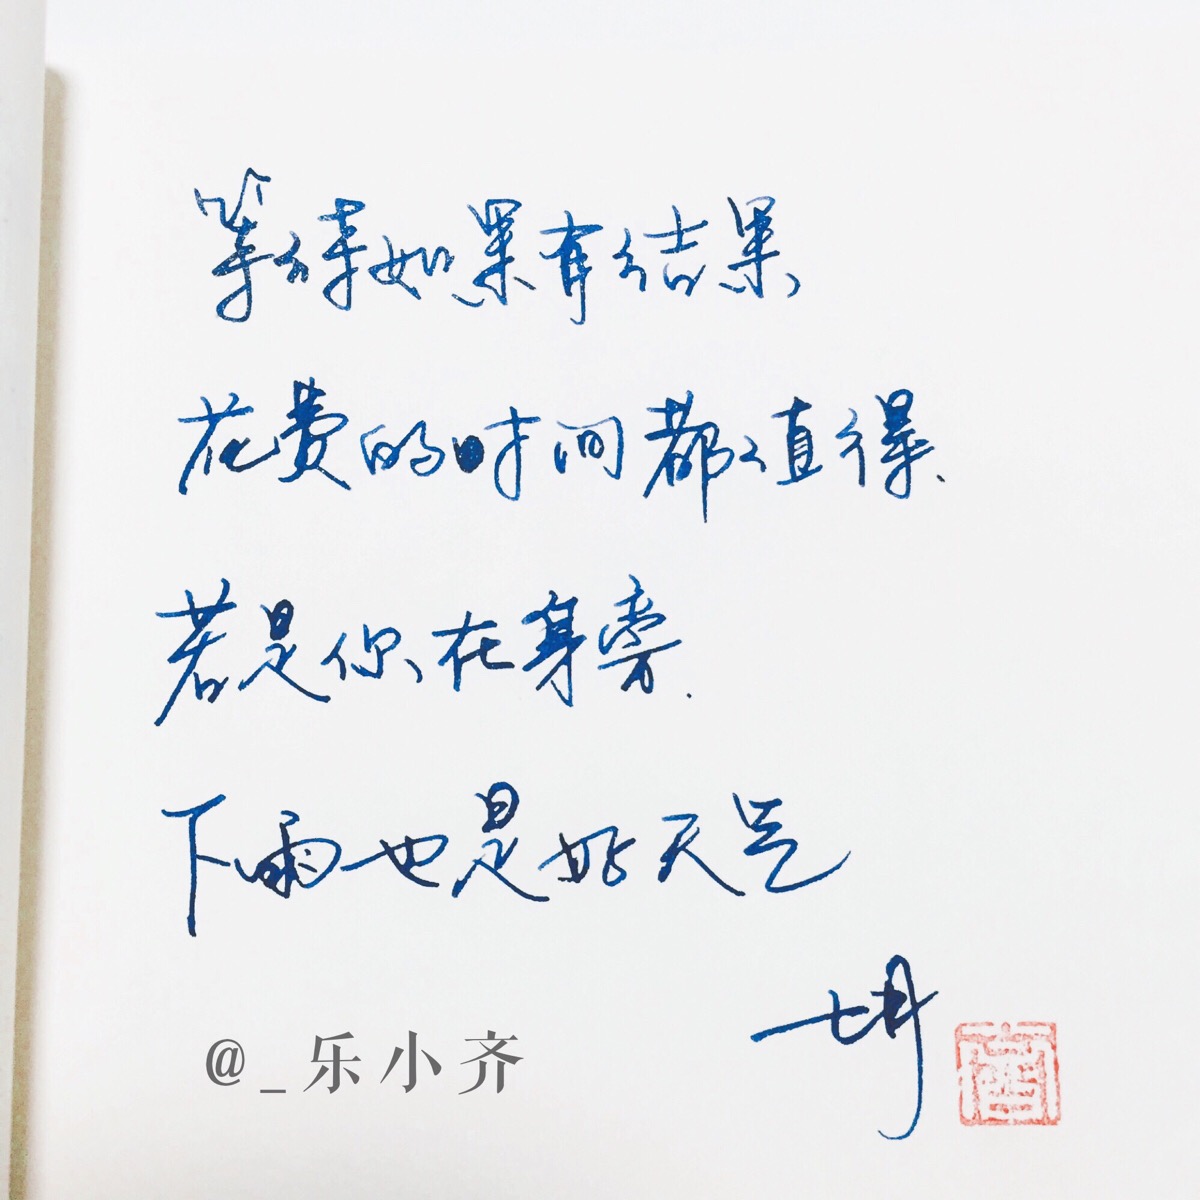 等待如果有结果
花费的时间都值得.
若是你在身旁.
下雨也是好天气
@_乐小齐